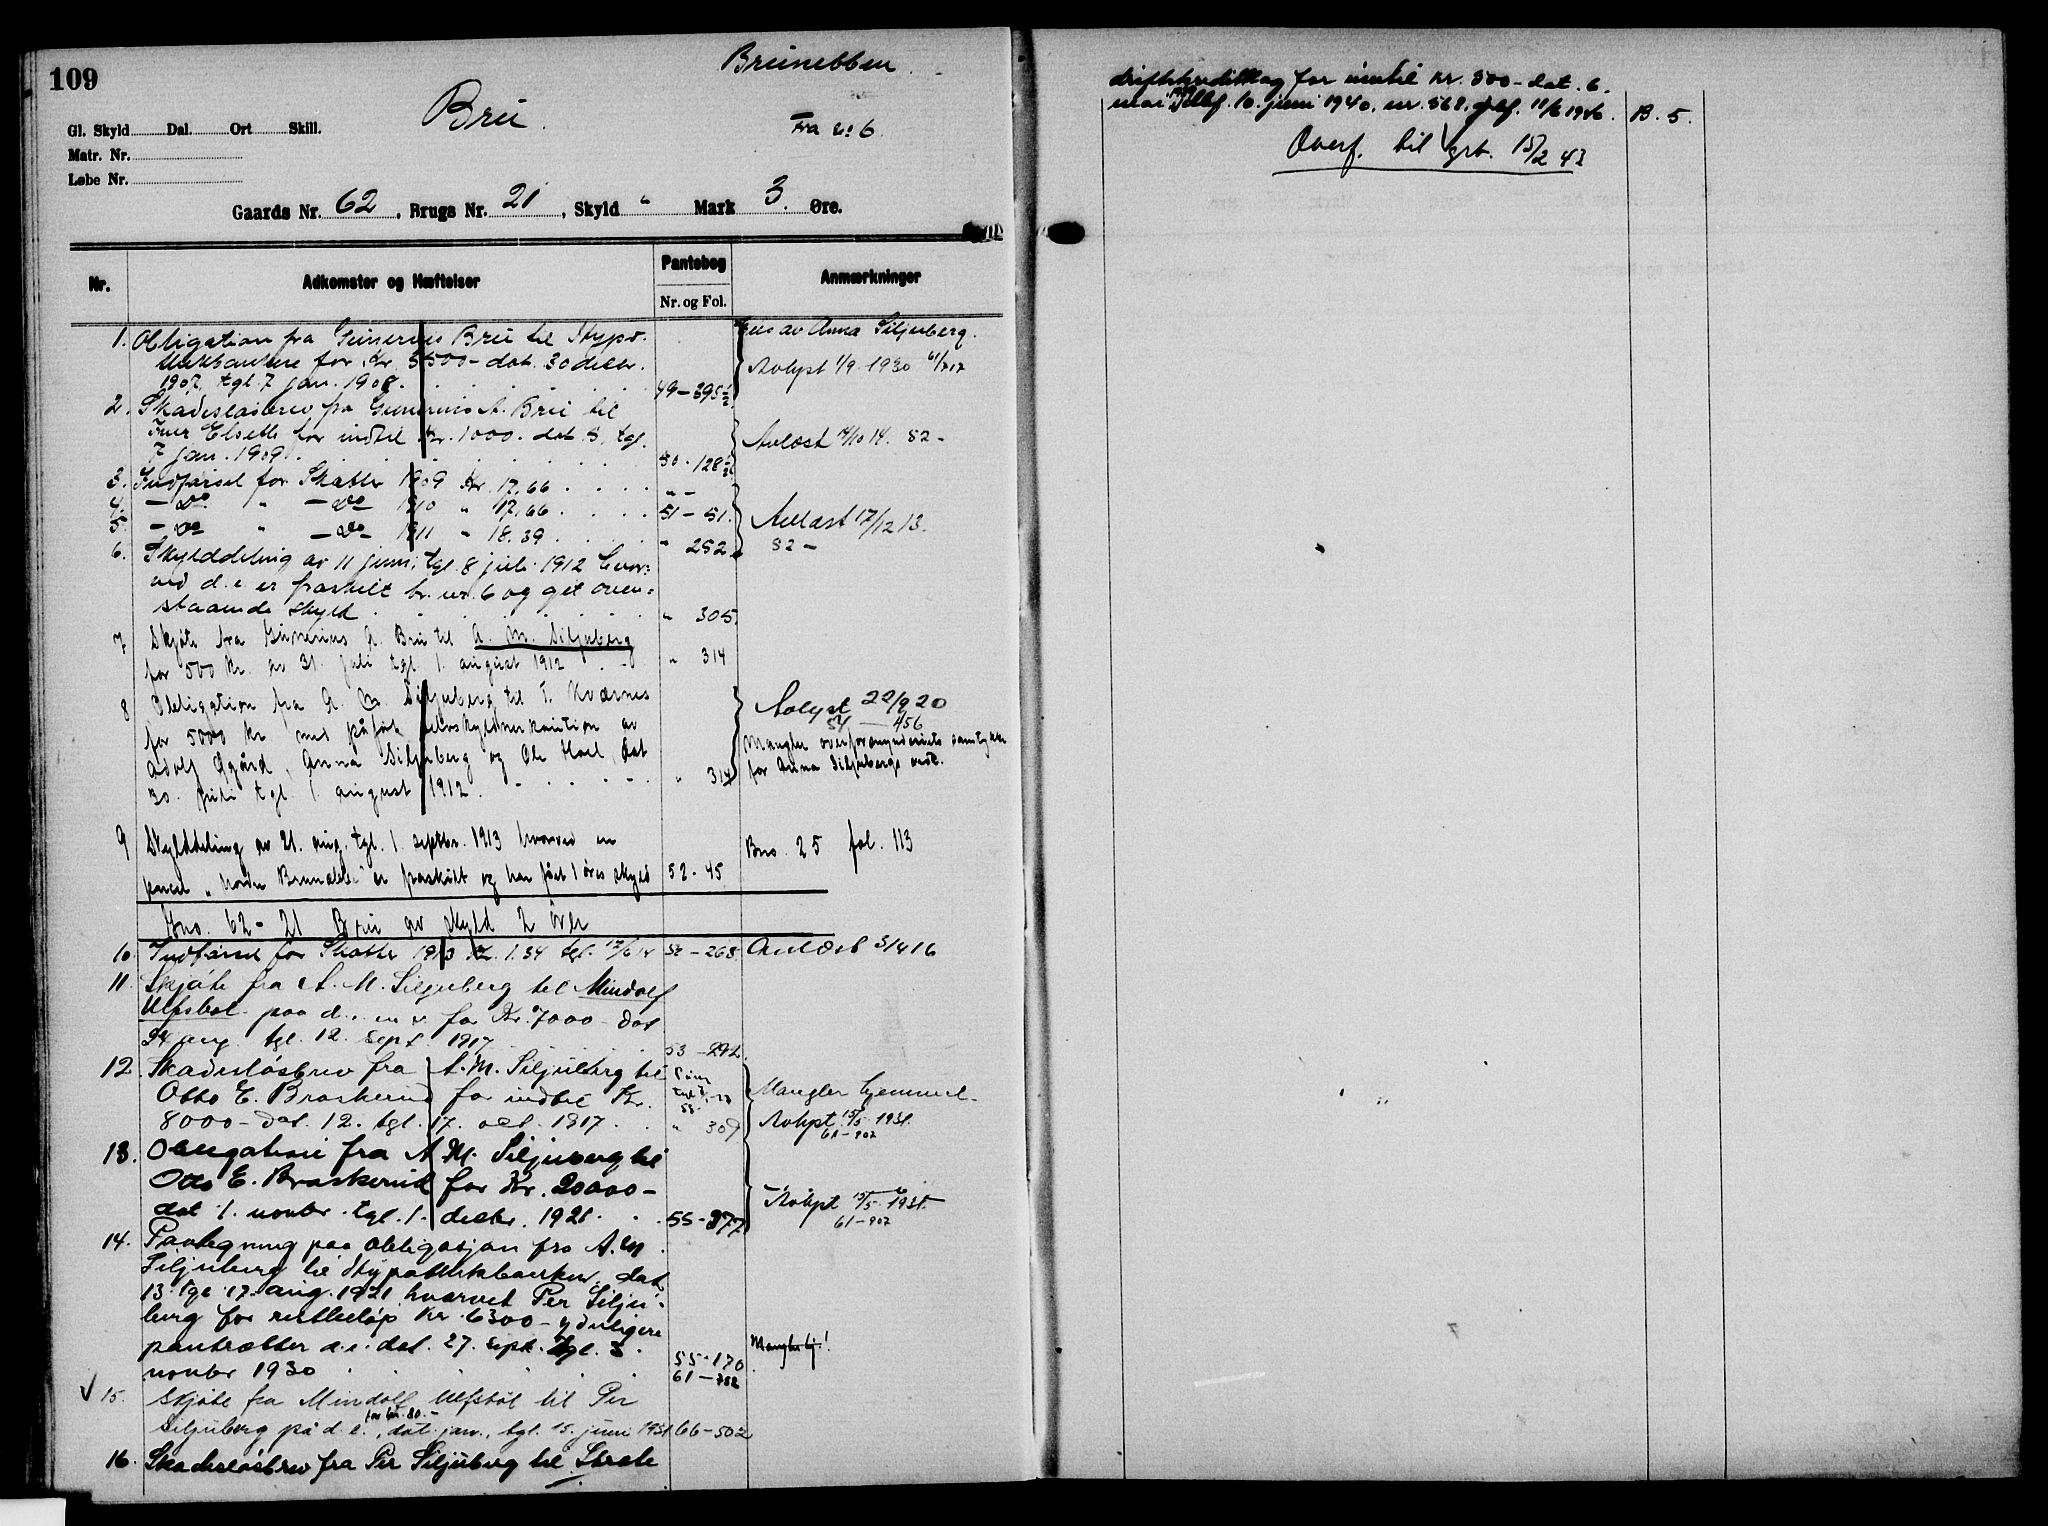 109
Brunebben
Bru
Fra no 6
Gl. Skyld Dal. Ort Skill.
Matr. Nr.
Løbe Nr.
Gaards Nr. 62, Brugs Nr. 21, Skyld " Mark 3. Øre.
Nr. Adkomster og Hæftelser Pantebog Anmærkninger
Nr. og Fol.
1. Obligation fra Gunerius Bru til Hypo-
thekbanken for Kr. 3500 - dat. 30 decbr.
1907, tgl. 7 jan. 1908. 49-395½
Eies av Anna Siljuberg.
Avlyst 1/9 1930 61/717
2. Skadesløsbrev fra Gunerius A. Bru til
Iver Elseth for indtil Kr. 1000. dat. 5, tgl.
7 jan. 1909. 50-128½
Avlæst 14/10 14. 52-
3. Indførsel for Skatter 1909 Kr. 17.66 " -
4. - Do " - Do 1910 " 17.66 51-51.
5. - Do " - Do 1911 " 18.39 " 252
Avlæst 17/12 13.
52-
6. Skylddeling av 11 juni, tgl. 8 juli 1912 hvor-
ved d. e. er fraskilt br. nr. 6 og git oven-
staaende skyld " 305.
7 Skjøte fra Gunerius A. Bru til A. M. Siljuberg
for 500 kr. av 31. juli tgl. 1. august 1912 " 314
8 Obligation fra A. M. Siljuberg til T. Kværnes
for 5000 kr med påført selvskyldnerkaution av
Adolf Øgård, Anna Siljuberg og Ole Hoel, dat
30. juli tgl. 1 august 1912. " 314
Avlyst 22/9 20
54-456
Mangler overformynderiets samtykke
for Anna Siljubergs vedk.
9 Skylddeling av 21. aug. tgl. 1. septbr. 1913 hvorved en
parcel "Nordre Brunebben" er fraskilt og har fått 1 øres skyld 52-45
Bno. 25 fol. 113
Gno. 62-21 Bru av skyld 2 øre
10. Indførsel for Skatter 1913 Kr. 1.34 tgl. 17/6 14 52-268. Avlæst 3/4 16
11. Skjøte fra A. M. Siljuberg til Mindolf
Ulfsbøl paa d. e. m. v. for Kr. 7000 - dat
24 aug. tgl. 12. sept. 1917. 53-292.
12. Skadesløsbrev fra A. M. Siljuberg til
Otto E. Braskerud for indtil Kr.
8000 - dat. 12. tgl. 17. oct. 1917. " 309
Mangler hjemmel.
Avlyst 15/5 1931.
61-902
13. Obligation fra A. M. Siljuberg til
Otto E. Braskerud for Kr. 20000 -
dat 1. novbr. tgl. 1. decbr. 1921. 55-377
Avlyst 15/5 1931.
61-902
14. Paategning paa obligasjon fra A. M.
Siljuberg til Hypothekbanken, dat.
13. tgl 17. aug. 1921 hvorved Per Silju-
berg for restbeløp Kr. 6300 - yderligere
pantsætter d. e. dat. 27. sept. tgl. 3.
novbr 1930 55-170
61-782
Mangler hj.!
15. Skjøte fra Mindolf Ulfsbøl til Per
Siljuberg på d. e. for kr. 80.-, dat. jan., tgl. 15. juni 1931 66-502
16. Skadesløsbrev fra Per Siljuberg til Strate
driftskreditlag for inntil kr. 500 - dat. 6.
mai 1939 tillf. 10. juni 1940. nr. 568. 11/6 1946. B. 5.
Overf. til grb. 15/2 43